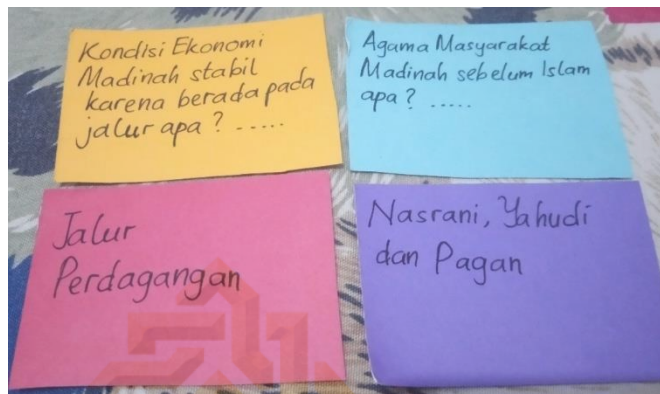 Kondisi Ekonomi
Madinah stabil
karena berada pada
jalur apa ? .....
Agama Masyarakat
Madinah sebelum Islam
apa ? .....
Jalur
Perdagangan
Nasrani, Yahudi
dan Pagan